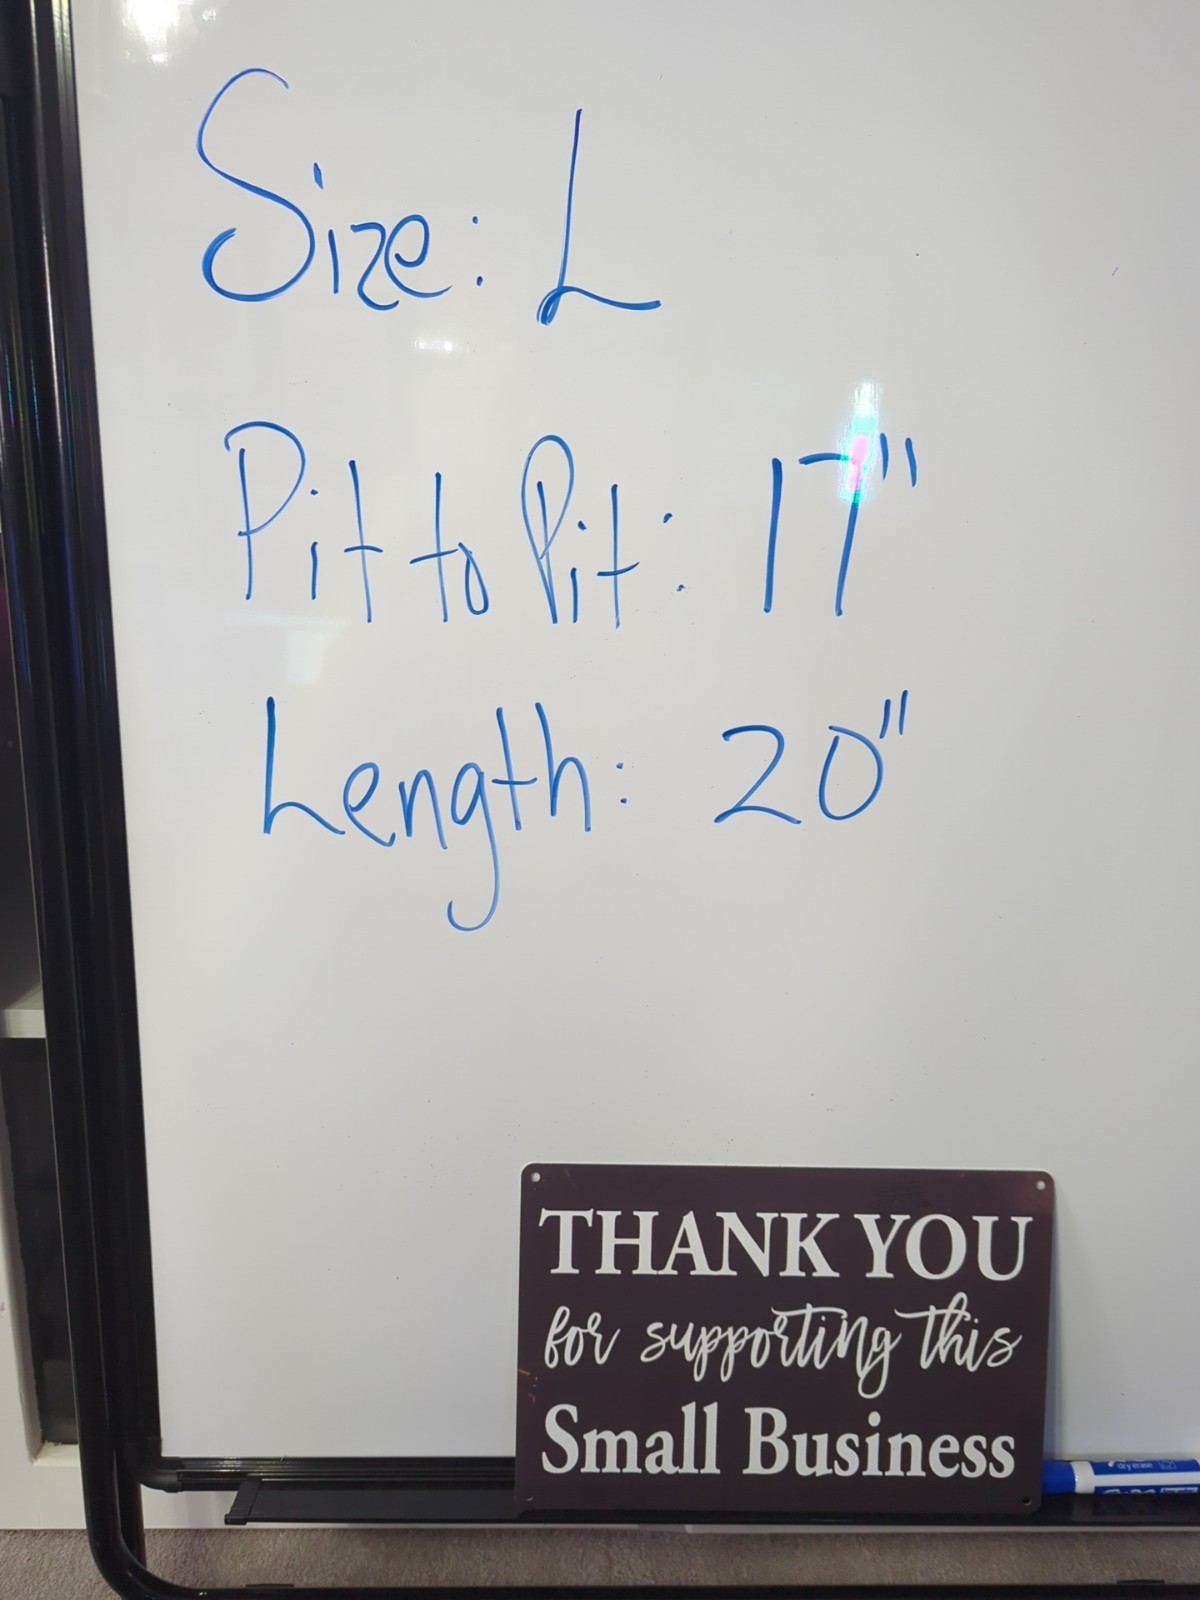 Size: L
Pit to Pit: 17"
Length: 20"
THANK YOU
for supporting this
Small Business
dry erase